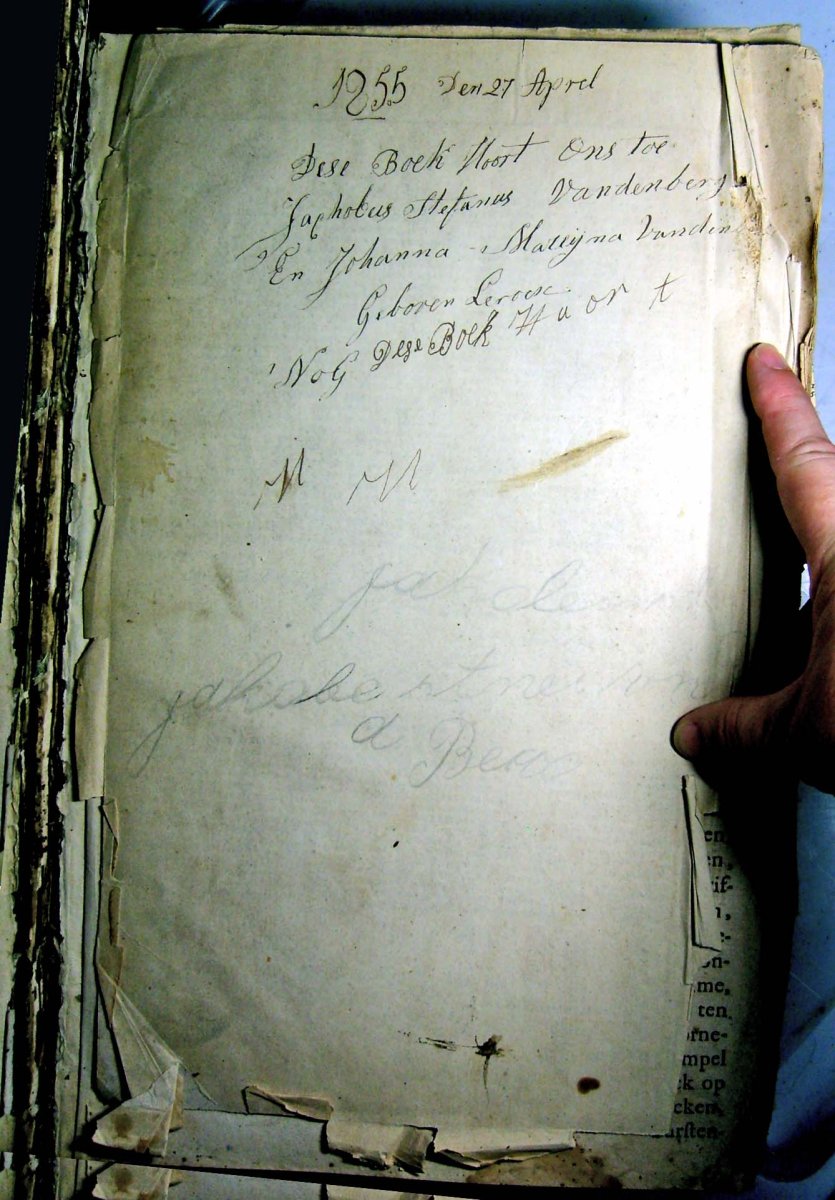 1855 Den 27 Aprel
Dese Boek Hoort Ons toe
Japhobus Stefanus Vandenberg
En Johanna Mattyna Vanden
Geboren Leroex
NoG Dese Boek H u or t
M M
jakobe
d Be
en
en,
rif-
n,
e-
on-
me,
ten
orne-
mpel
ek op
cken,
arsten-